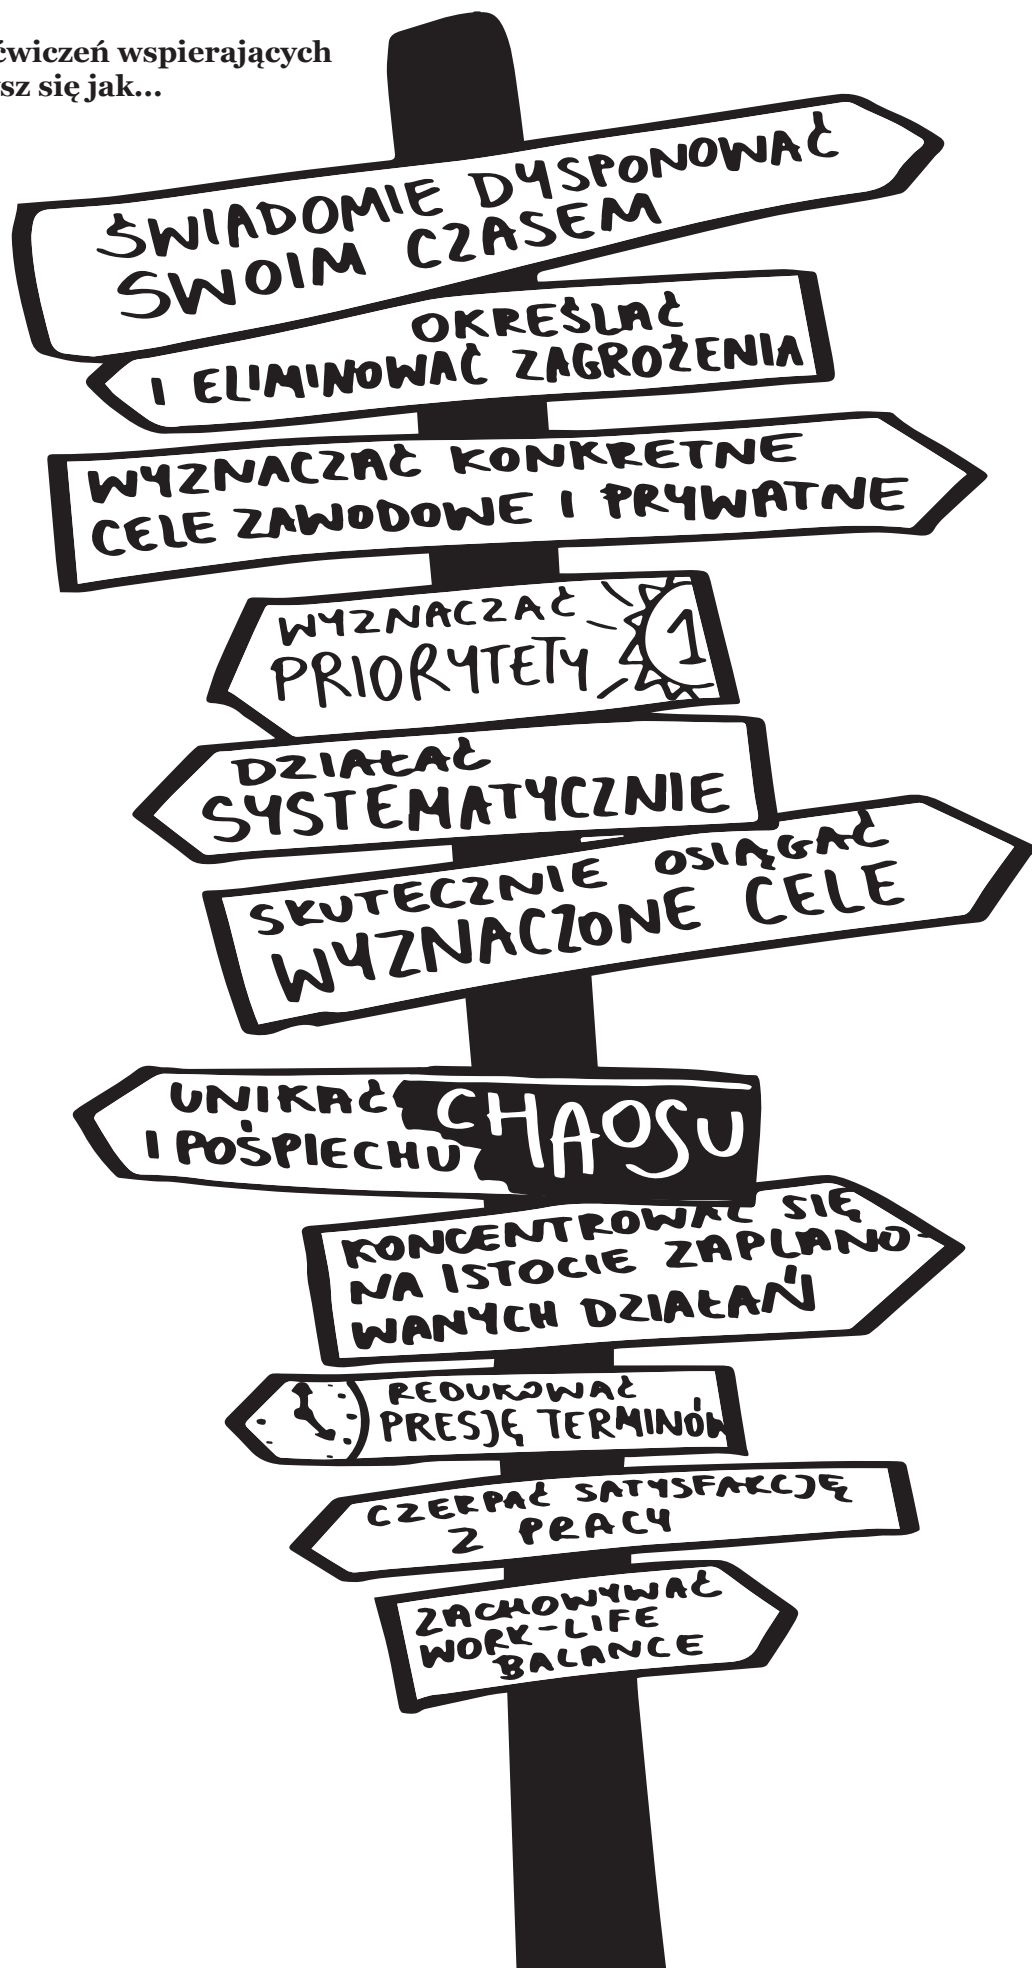 ćwiczeń wspierających
sz się jak...
ŚWIADOMIE DYSPONOWAĆ
SWOIM CZASEM
OKREŚLAĆ
I ELIMINOWAĆ ZAGROŻENIA
WYZNACZAĆ KONKRETNE
CELE ZAWODOWE I PRYWATNE
WYZNACZAĆ
PRIORYTETY 1
DZIAŁAĆ
SYSTEMATYCZNIE
SKUTECZNIE OSIĄGAĆ
WYZNACZONE CELE
UNIKAĆ CHAOSU
I POŚPIECHU
KONCENTROWAĆ SIĘ
NA ISTOCIE ZAPLANO-
WANYCH DZIAŁAŃ
REDUKOWAĆ
PRESJĘ TERMINÓW
CZERPAĆ SATYSFAKCJĘ
Z PRACY
ZACHOWYWAĆ
WORK-LIFE
BALANCE